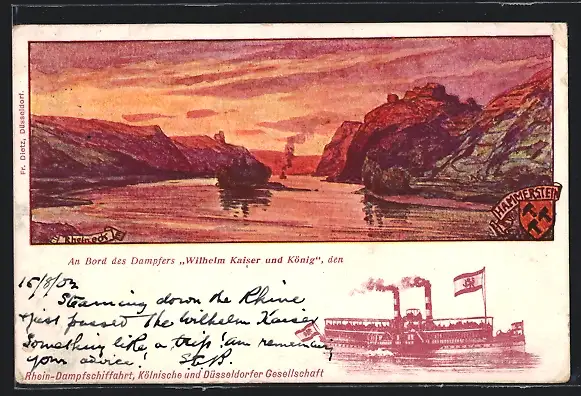 Fr. Dietz, Düsseldorf.
Rheineck
HAMMERSTEIN
An Bord des Dampfers „Wilhelm Kaiser und König", den
15/8/02
Steaming down the Rhine
& just passed the Wilhelm Kaiser
Something like a trip! am remembering
your advice!
Rhein-Dampfschiffahrt, Kölnische und Düsseldorfer Gesellschaft